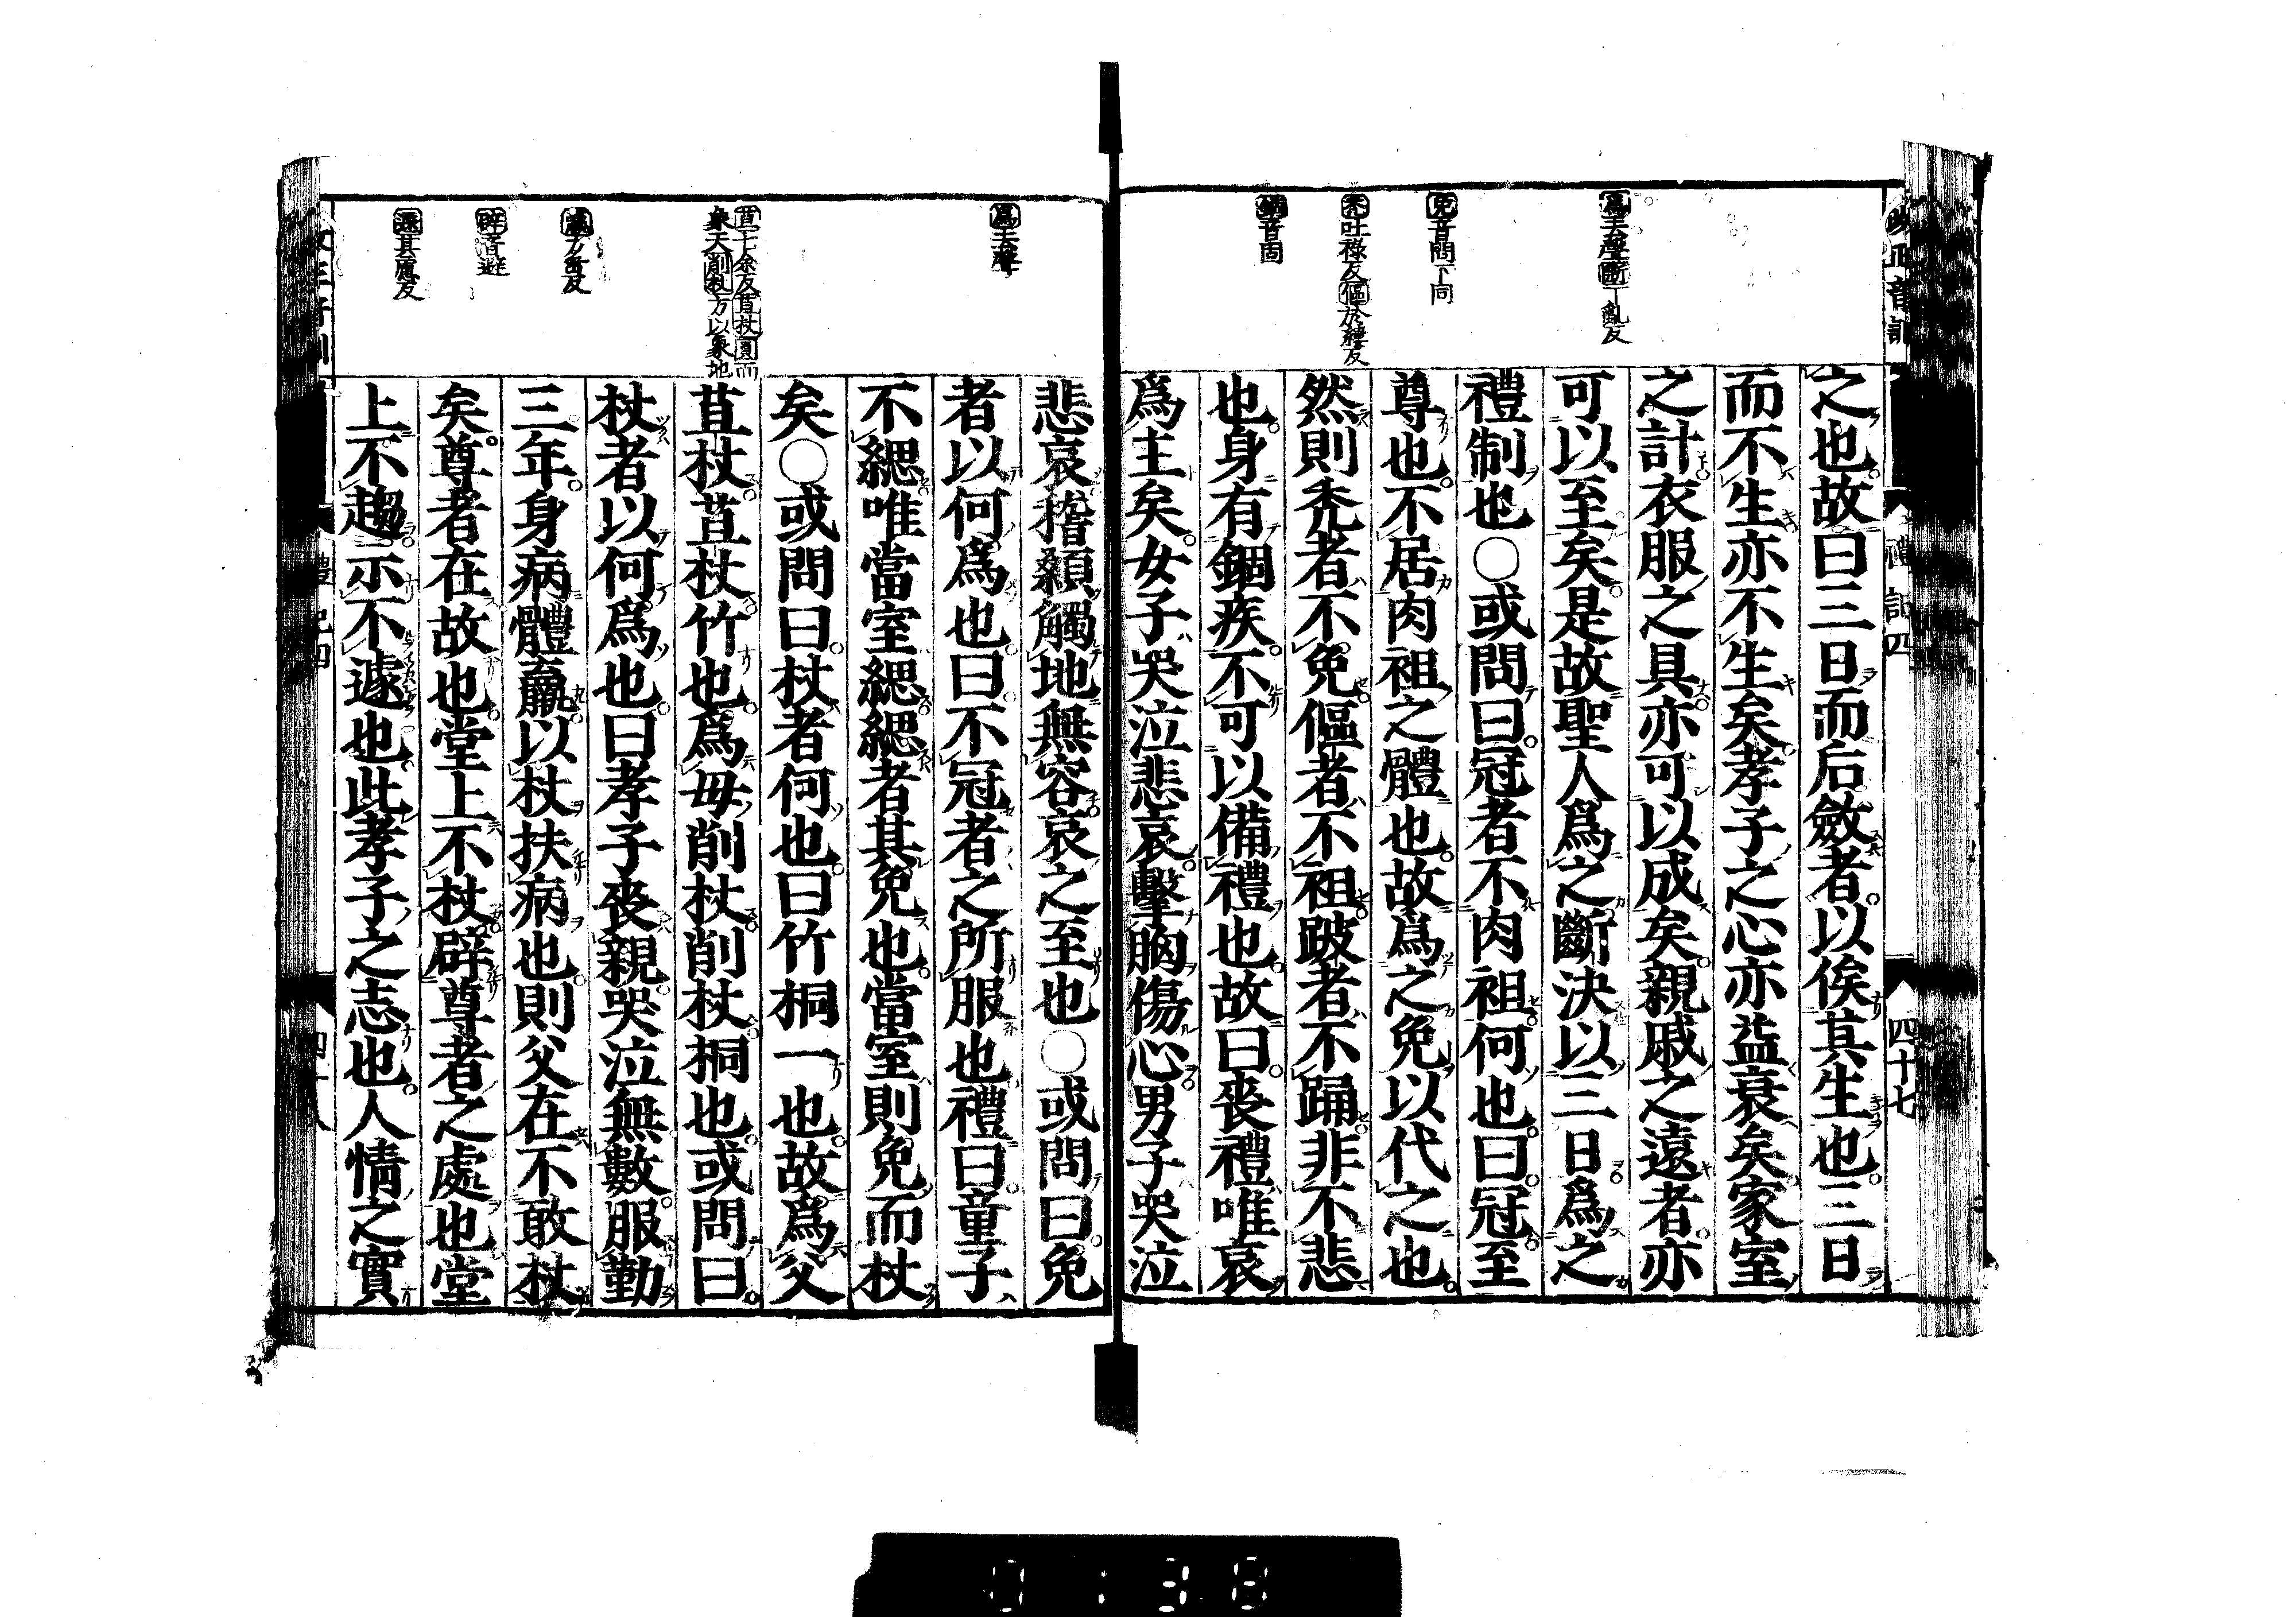 爲去聲斷丁亂反
免音問下同
禿吐祿反傴於縷反
錮音固
之也故曰三日而后斂者以俟其生也三日
而不生亦不生矣孝子之心亦益衰矣家室
之計衣服之具亦可以成矣親戚之遠者亦
可以至矣是故聖人爲之斷決以三日爲之
禮制也○或問曰冠者不肉袒何也曰冠至
尊也不居肉袒之體也故爲之免以代之也
然則禿者不免傴者不袒跛者不踊非不悲
也身有錮疾不可以備禮也故曰喪禮唯哀
爲主矣女子哭泣悲哀擊胸傷心男子哭泣
禮記四
四十七
爲去聲
苴七余反苴杖圓而
象天削杖方以象地
羸力垂反
辟音避
遽其慮反
悲哀稽顙觸地無容哀之至也○或問曰免
者以何爲也曰不冠者之所服也禮曰童子
不緦唯當室緦緦者其免也當室則免而杖
矣○或問曰杖者何也曰竹桐一也故爲父
苴杖苴杖竹也爲毋削杖削杖桐也或問曰
杖者以何爲也曰孝子喪親哭泣無數服勤
三年身病體羸以杖扶病也則父在不敢杖
矣尊者在故也堂上不杖辟尊者之處也堂
上不趨示不遽也此孝子之志也人情之實
0138